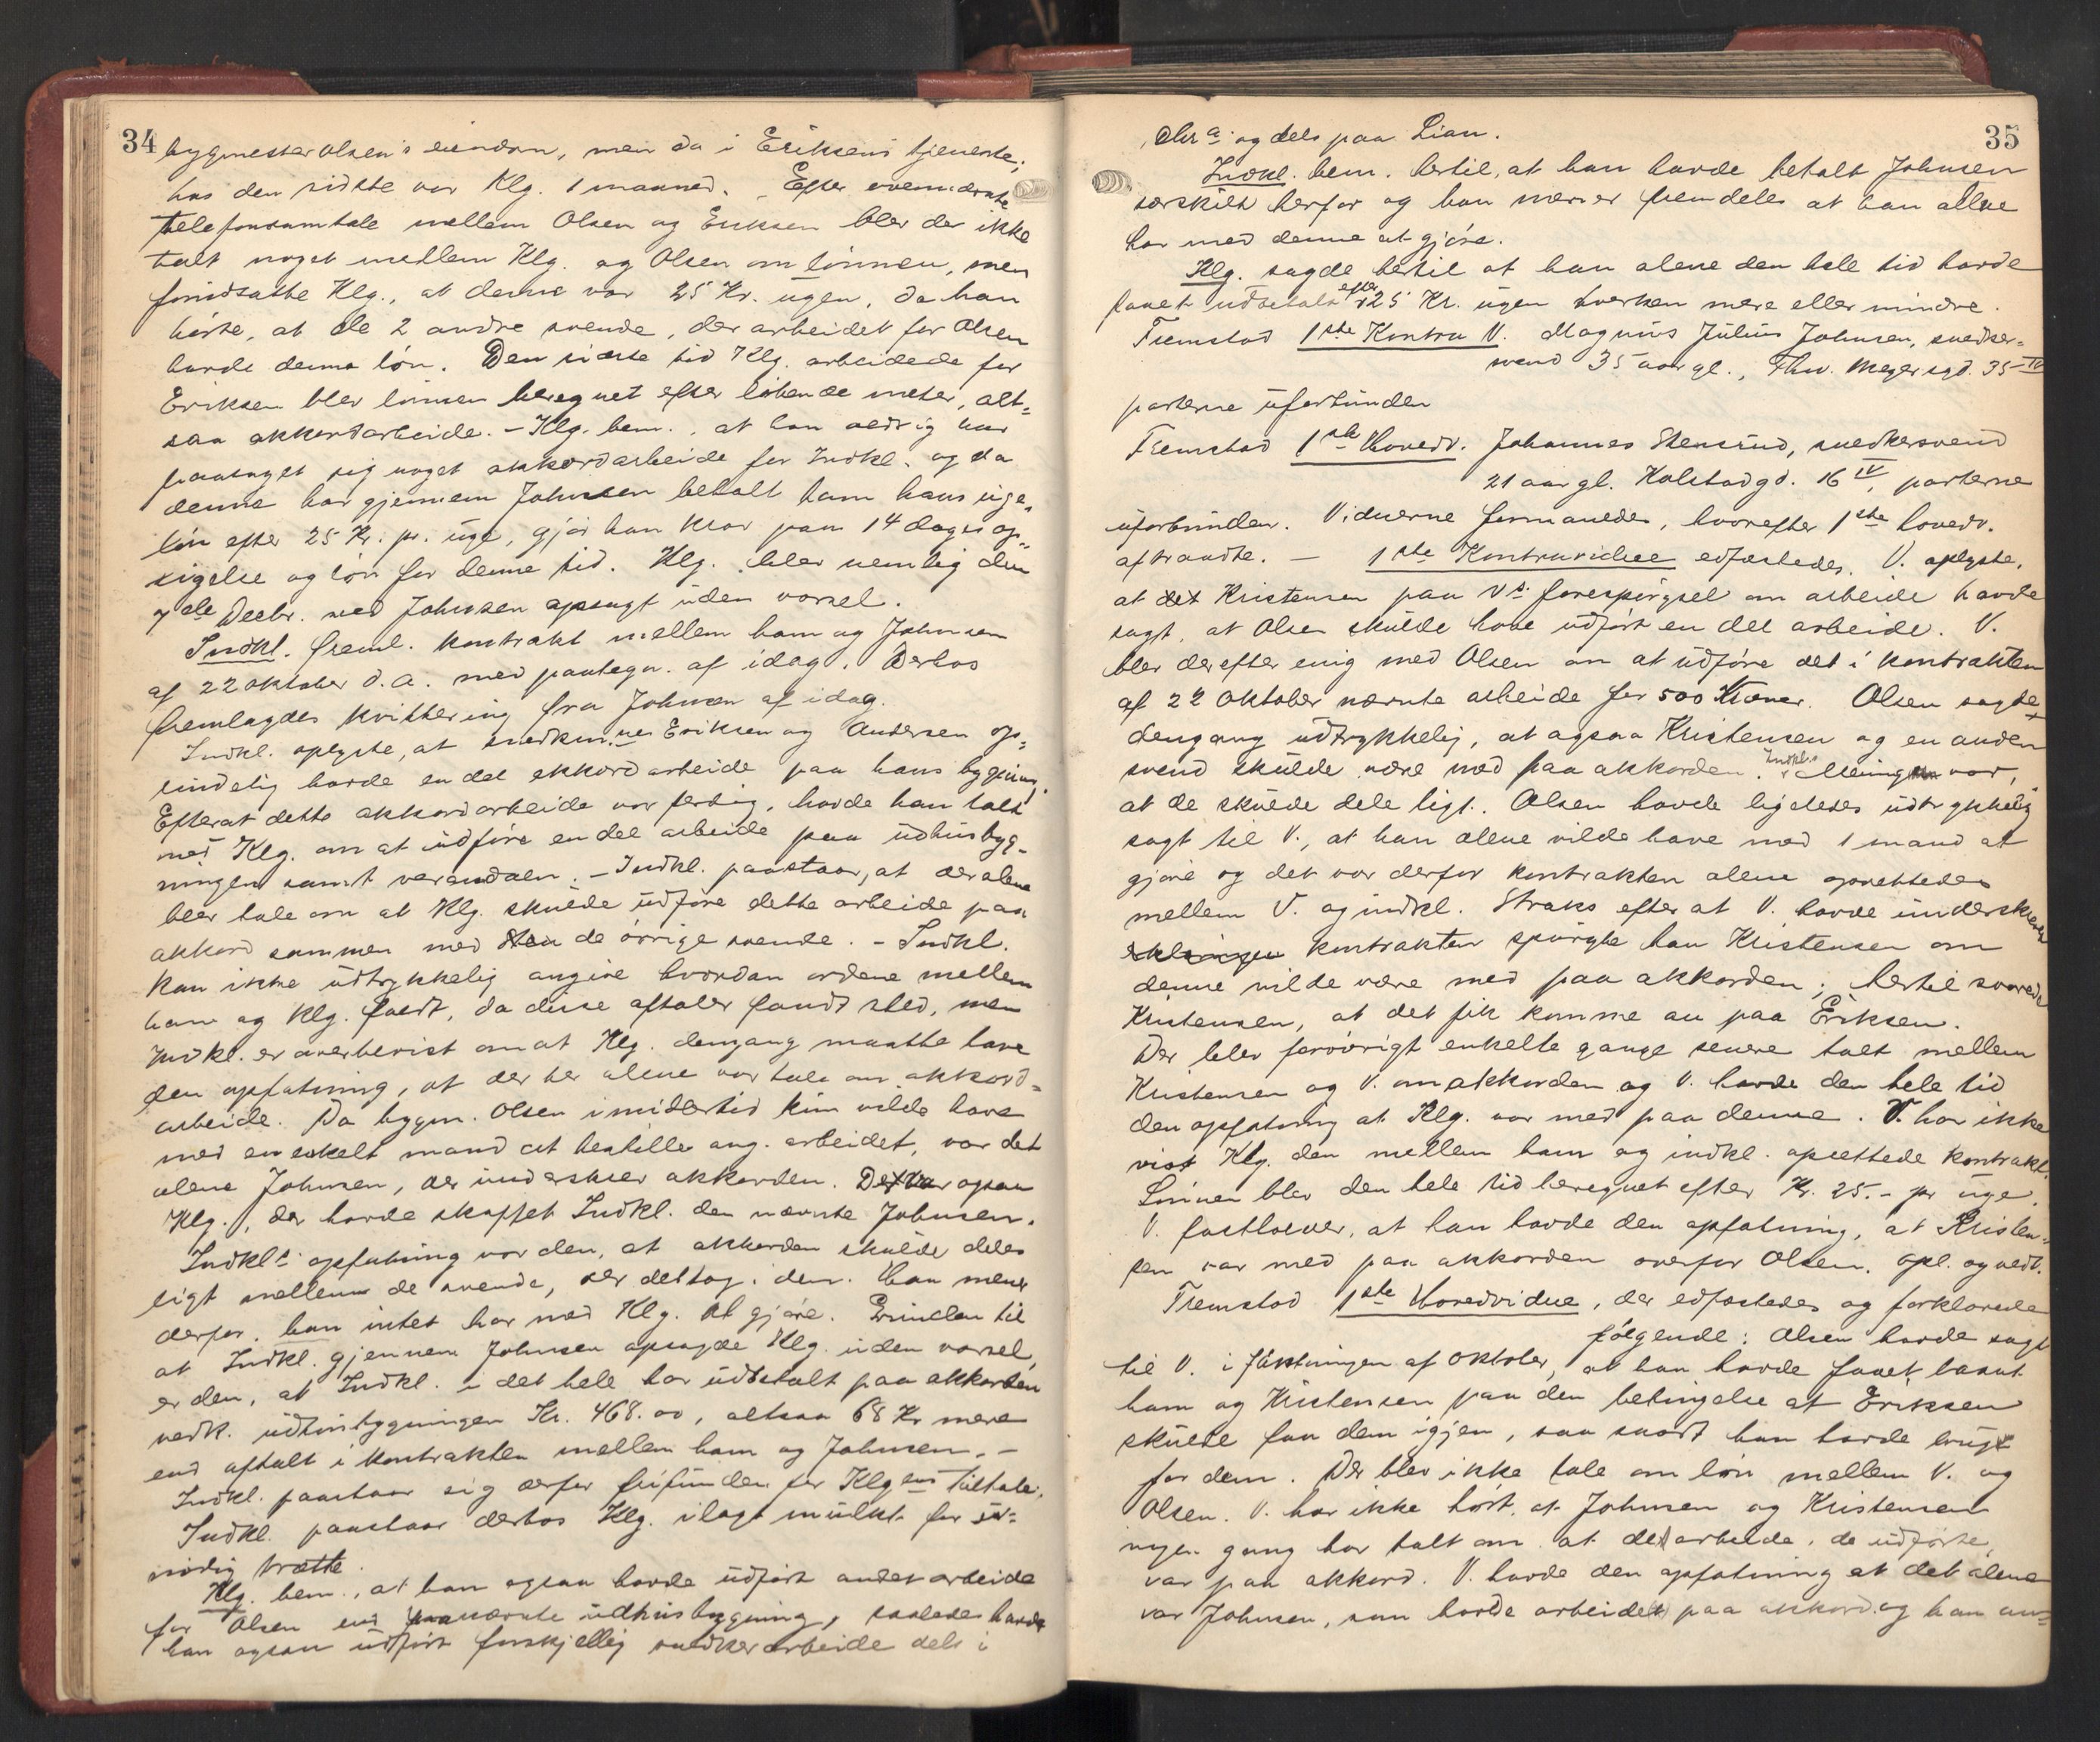 34
bygmester Olsen's eiendom, men da i Eriksens tjeneste;
hos den sidste var Klg. 1 maaned. Efter ovennævnte
telefonsamtale mellem Olsen og Eriksen blev der ikke
talt noget mellem Klg. og Olsen om lønnen, men
forudsatte Klg., at denne var 25 Kr. ugen, da han
hørte, at de 2 andre svende, der arbeidet for Olsen
havde denne løn. Den sidste tid Klg. arbeidede for
Eriksen blev lønnen beregnet efter løbende meter, alt=
saa akkordarbeide. - Klg. bem., at han aldrig har
paataget sig noget akkordarbeide for Indkl. og da
denne har gjennem Johnsen betalt ham hans uge=
løn efter 25 Kr. pr. uge, gjør han krav paa 14 dages op=
sigelse og løn for denne tid. Klg. blev nemlig den
7de Decbr. ved Johnsen opsagt uden varsel.
Indkl. freml. kontrakt mellem ham og Johnsen
af 22 oktober d.a. med paategn. af idag. Derhos
fremlagdes kvittering fra Johnsen af idag.
Indkl. oplyste, at snedkerne Eriksen og Andersen op=
rindelig havde en del akkordarbeide paa hans bygning.
Efterat dette akkordarbeide var færdig, havde han talt
med Klg. om at udføre en del arbeide paa udhusbyg=
ningen samt verandaen. - Indkl. paastaar, at der alene
blev tale om at Klg. skulde udføre dette arbeide paa
akkord sammen med de øvrige svende. - Indkl.
kan ikke udtrykkelig angive hvordan ordene mellem
ham og Klg. faldt, da disse aftaler fandt sted, men
Indkl. er overbevist om at Klg. dengang maatte have
den opfatning, at der her alene var tale om akkord=
arbeide. Da bygm. Olsen imidlertid kun vilde have
med en enkelt mand at bestille ang. arbeidet, var det
alene Johnsen, der underskrev akkorden. Det var ogsaa
Klg., der havde skaffet Indkl. den nævnte Johnsen.
Indkls opfatning var den, at akkorden skulde deles
ligt mellem de svende, der deltog i den. Han mener
derfor, han intet har med Klg. at gjøre. Grunden til
at Indkl. gjennem Johnsen opsagde Klg. uden varsel,
er den, at Indkl. i det hele har udbetalt paa akkorden
vedk. udhusbygningen Kr. 468.00, altsaa 68 Kr mere
end aftalt i kontrakten mellem ham og Johnsen. -
Indkl. paastaar sig derfor frifunden for Klgens tiltale.
Indkl. paastaar derhos Klg. ilagt mulkt for un=
nødig trætte.
Klg. bem., at han ogsaa havde udført andet arbeide
for Olsen end nævnte udhusbygning, saaledes havde
han ogsaa udført forskjellig snedkerarbeide dels i
35
Chra. og dels paa Lian.
Indkl. bem. hertil, at han havde betalt Johnsen
særskilt herfor og han mener fremdeles at han alene
har med denne at gjøre.
Klg. sagde hertil at han alene den hele tid havde
faaet udbetalt efter 25 Kr. ugen hverken mere eller mindre.
Fremstod 1ste Kontra V. Magnus Julius Johnsen, snedker=
svend 35 aar gl., Thv. Meyersgd. 35 IV
parterne uforbunden
Fremstod 1ste Hovedv. Johannes Stensrud, snedkersvend
21 aar gl. Kalstadgd. 16 IV, parterne
uforbunden. Vidnerne formanedes, hvorefter 1ste hovedv.
aftraadte. - 1ste Kontravidne edfæstedes. V. oplyste,
at Kristensen paa V's forespørgsel om arbeide havde
sagt, at Olsen skulde have udført en del arbeide. V.
blev derefter enig med Olsen om at udføre det i kontrakten
af 22 oktober nævnte arbeide for 500 Kroner. Olsen sagde
dengang udtrykkelig, at ogsaa Kristensen og en anden
svend skulde være med paa akkorden. Indkl.s Mening var,
at de skulde dele ligt. Olsen havde ligeledes udtrykkelig
sagt til V., at han alene vilde have med 1 mand at
gjøre og det var derfor kontrakten alene oprettedes
mellem V. og indkl. Straks efter at V. havde underskrevet
kontrakten spurgte han Kristensen om
denne vilde være med paa akkorden; hertil svarede
Kristensen, at det fik komme an paa Eriksen.
Der blev forøvrigt enkelte gange senere talt mellem
Kristensen og V. om akkorden og V. havde den hele tid
den opfatning at Klg. var med paa denne. V. har ikke
vist Klg. den mellem ham og indkl. oprettede kontrakt.
Lønnen blev den hele tid beregnet efter Kr. 25.- pr uge.
V. fastholder, at han havde den opfatning, at Kristen=
sen var med paa akkorden overfor Olsen. Opl. og vedt.
Fremstod 1ste Hovedvidne, der edfæstedes og forklarede
følgende: Olsen havde sagt
til V. i slutningen af oktober, at han havde faaet laant
ham og Kristensen paa den betingelse at Eriksen
skulde faa dem igjen, saa snart han havde brug
for dem. Der blev ikke tale om løn mellem V. og
Olsen. V. har ikke hørt, at Johnsen og Kristensen
nogen gang har talt om at det arbeide, de udførte,
var paa akkord. V. havde den opfatning at det alene
var Johnsen, som havde arbeidet paa akkord og han an=